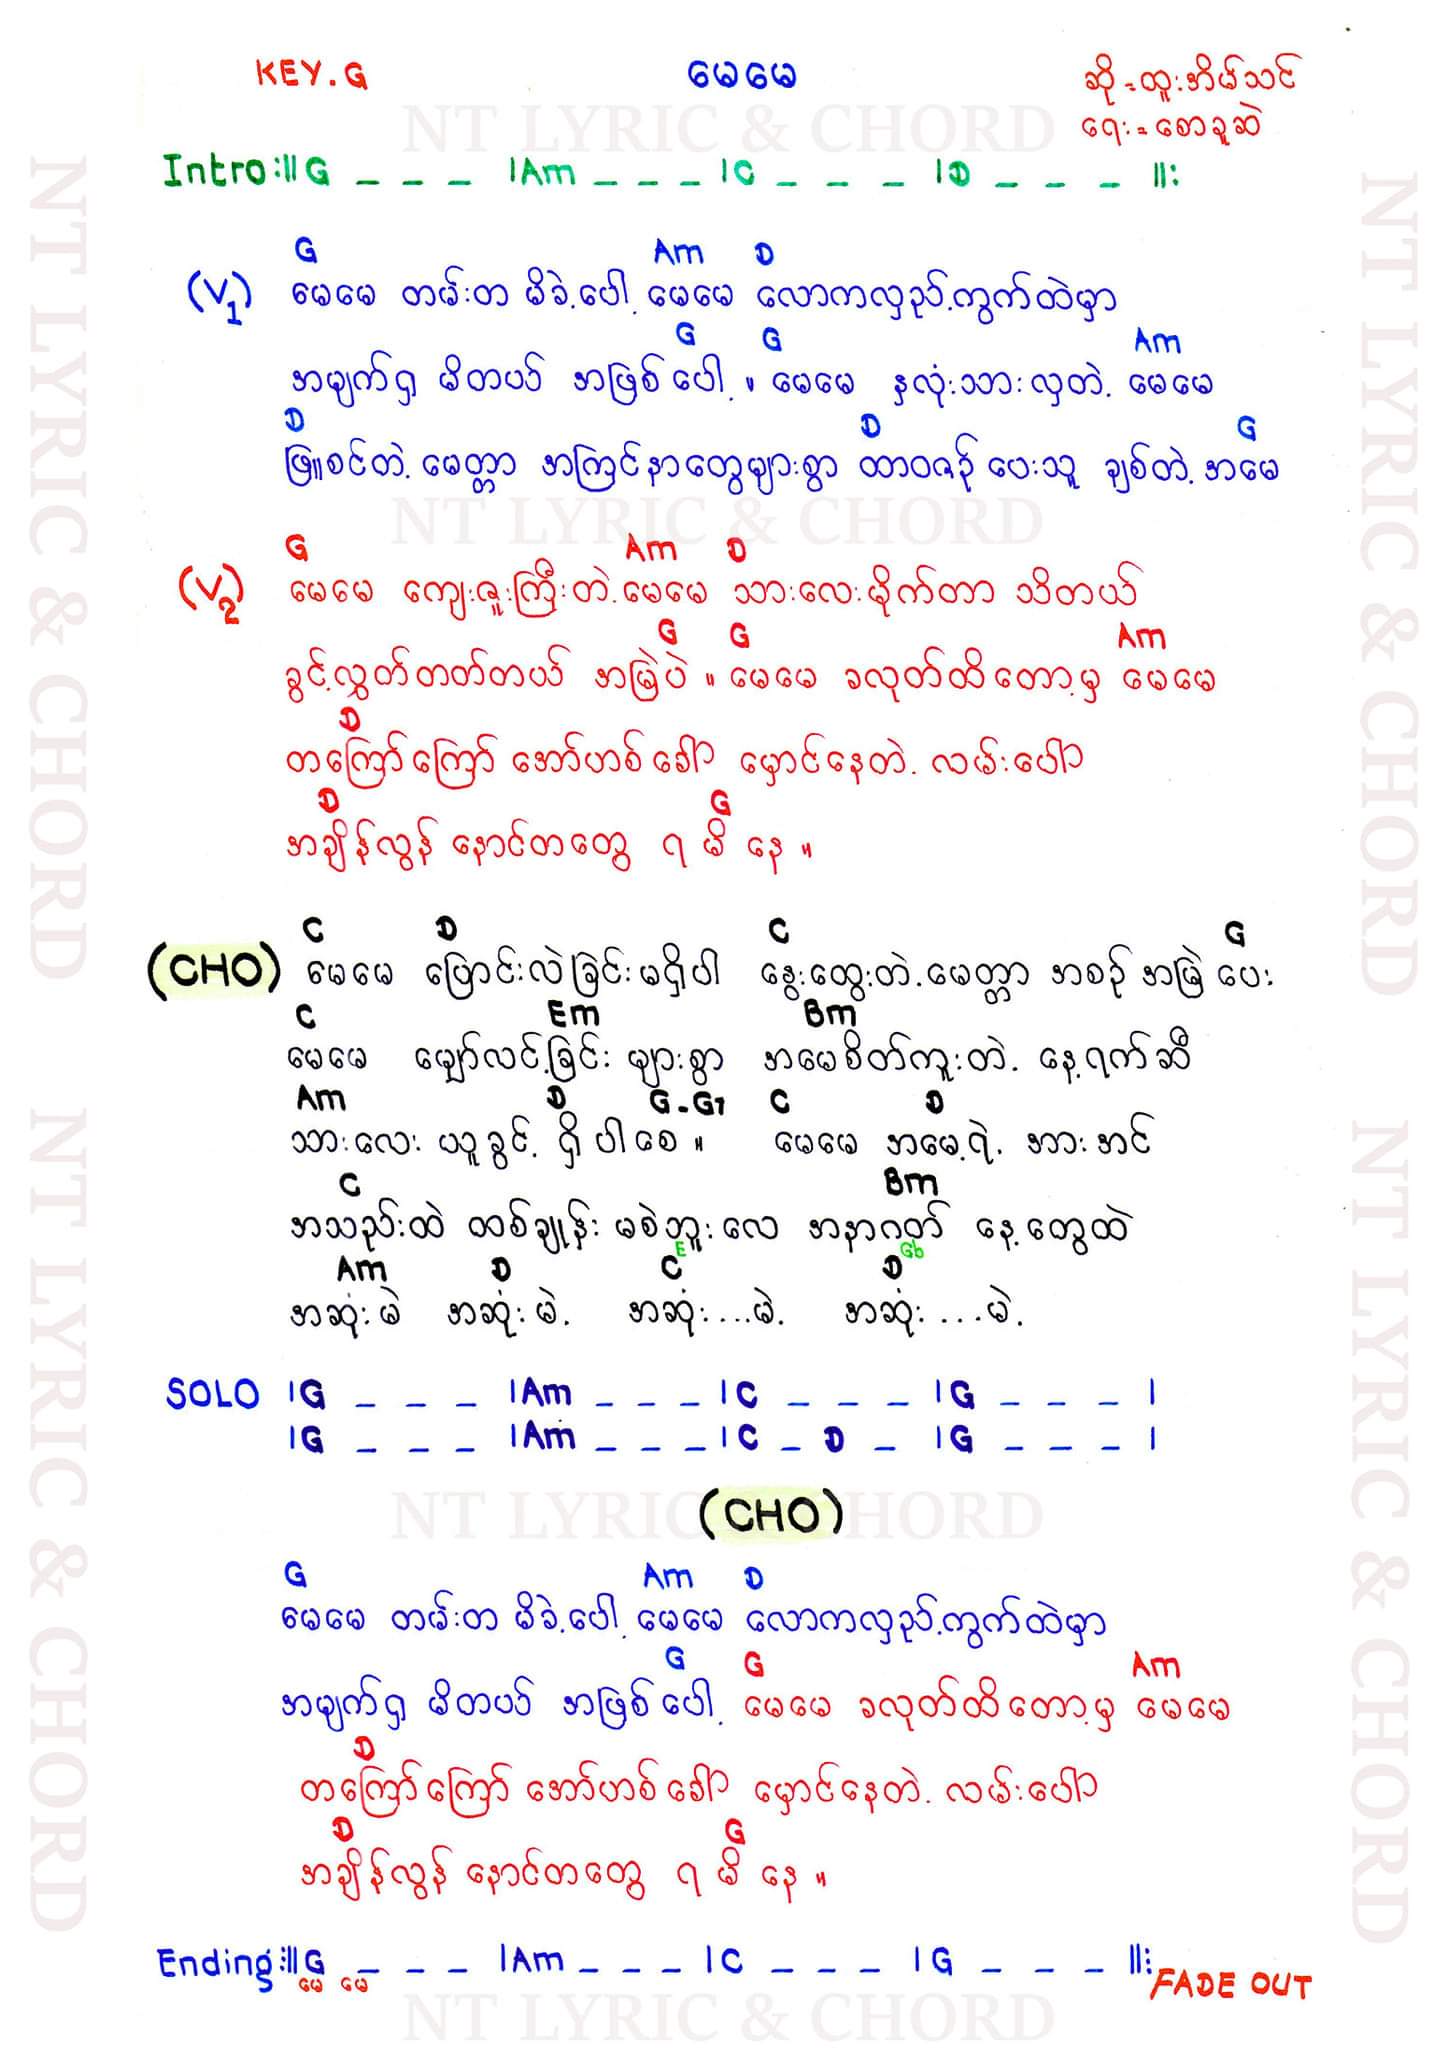 KEY.G မေမေ ဆို = ထူးအိမ်သင်
NT LYRIC & CHORD ရေး = စောခူဆဲ
Intro :|| G _ _ _ |Am _ _ _ |C _ _ _ |D _ _ _ ||:
G Am D
(V1) မေမေ တမ်းတ မိခဲ့ပေါ့ မေမေ လောကလှည့်ကွက်ထဲမှာ
G G Am
အမျက်ရှ မိတယ် အဖြစ် ပေါ့ ။ မေမေ နှလုံးသားလှတဲ့ မေမေ
D D G
ဖြူစင်တဲ့ မေတ္တာ အကြင်နာတွေများစွာ ထာဝစဉ် ပေးသူ ချစ်တဲ့ အမေ
NT LYRIC & CHORD
G Am D
(V2) မေမေ ကျေးဇူးကြီးတဲ့ မေမေ သားလေးမိုက်တာ သိတယ်
G G Am
ခွင့်လွှတ်တတ်တယ် အမြဲပဲ ။ မေမေ ခလုတ်ထိတော့မှ မေမေ
D
တကြော်ကြော် အော်ဟစ်ခေါ် မှောင်နေတဲ့ လမ်းပေါ်
D G
အချိန်လွန် နောင်တတွေ ရ မိ နေ ။
C D C G
(CHO) မေမေ ပြောင်းလဲခြင်း မရှိပါ နွေးထွေးတဲ့ မေတ္တာ အစဉ် အမြဲ ပေး
C Em Bm
မေမေ မျှော်လင့်ခြင်း များစွာ အမေစိတ်ကူးတဲ့ နေ့ရက်ဆီ
Am D G - G7 C D
သားလေး ယူခွင့် ရှိ ပါ စေ ။ မေမေ အမေ့ရဲ့ အားအင်
C Bm
အသည်းထဲ ထစ်ချုန်း မစဲဘူးလေ အနာဂတ် နေ့တွေထဲ
E Gb
Am D C D
အဆုံးမဲ အဆုံးမဲ့ အဆုံး...မဲ့ အဆုံး...မဲ့
SOLO |G _ _ _ |Am _ _ _ |C _ _ _ |G _ _ _ |
|G _ _ _ |Am _ _ _ |C _ D _ |G _ _ _ |
NT LYRIC & CHORD
(CHO)
G Am D
မေမေ တမ်းတ မိခဲ့ပေါ့ မေမေ လောကလှည့်ကွက်ထဲမှာ
G G Am
အမျက်ရှ မိတယ် အဖြစ် ပေါ့ မေမေ ခလုတ်ထိတော့မှ မေမေ
D
တကြော်ကြော် အော်ဟစ်ခေါ် မှောင်နေတဲ့ လမ်းပေါ်
D G
အချိန်လွန် နောင်တတွေ ရ မိ နေ ။
Ending :|| G _ _ _ |Am _ _ _ |C _ _ _ |G _ _ _ ||:
မေ မေ FADE OUT
NT LYRIC & CHORD
NT LYRIC & CHORD NT LYRIC & CHORD
NT LYRIC & CHORD NT LYRIC & CHORD